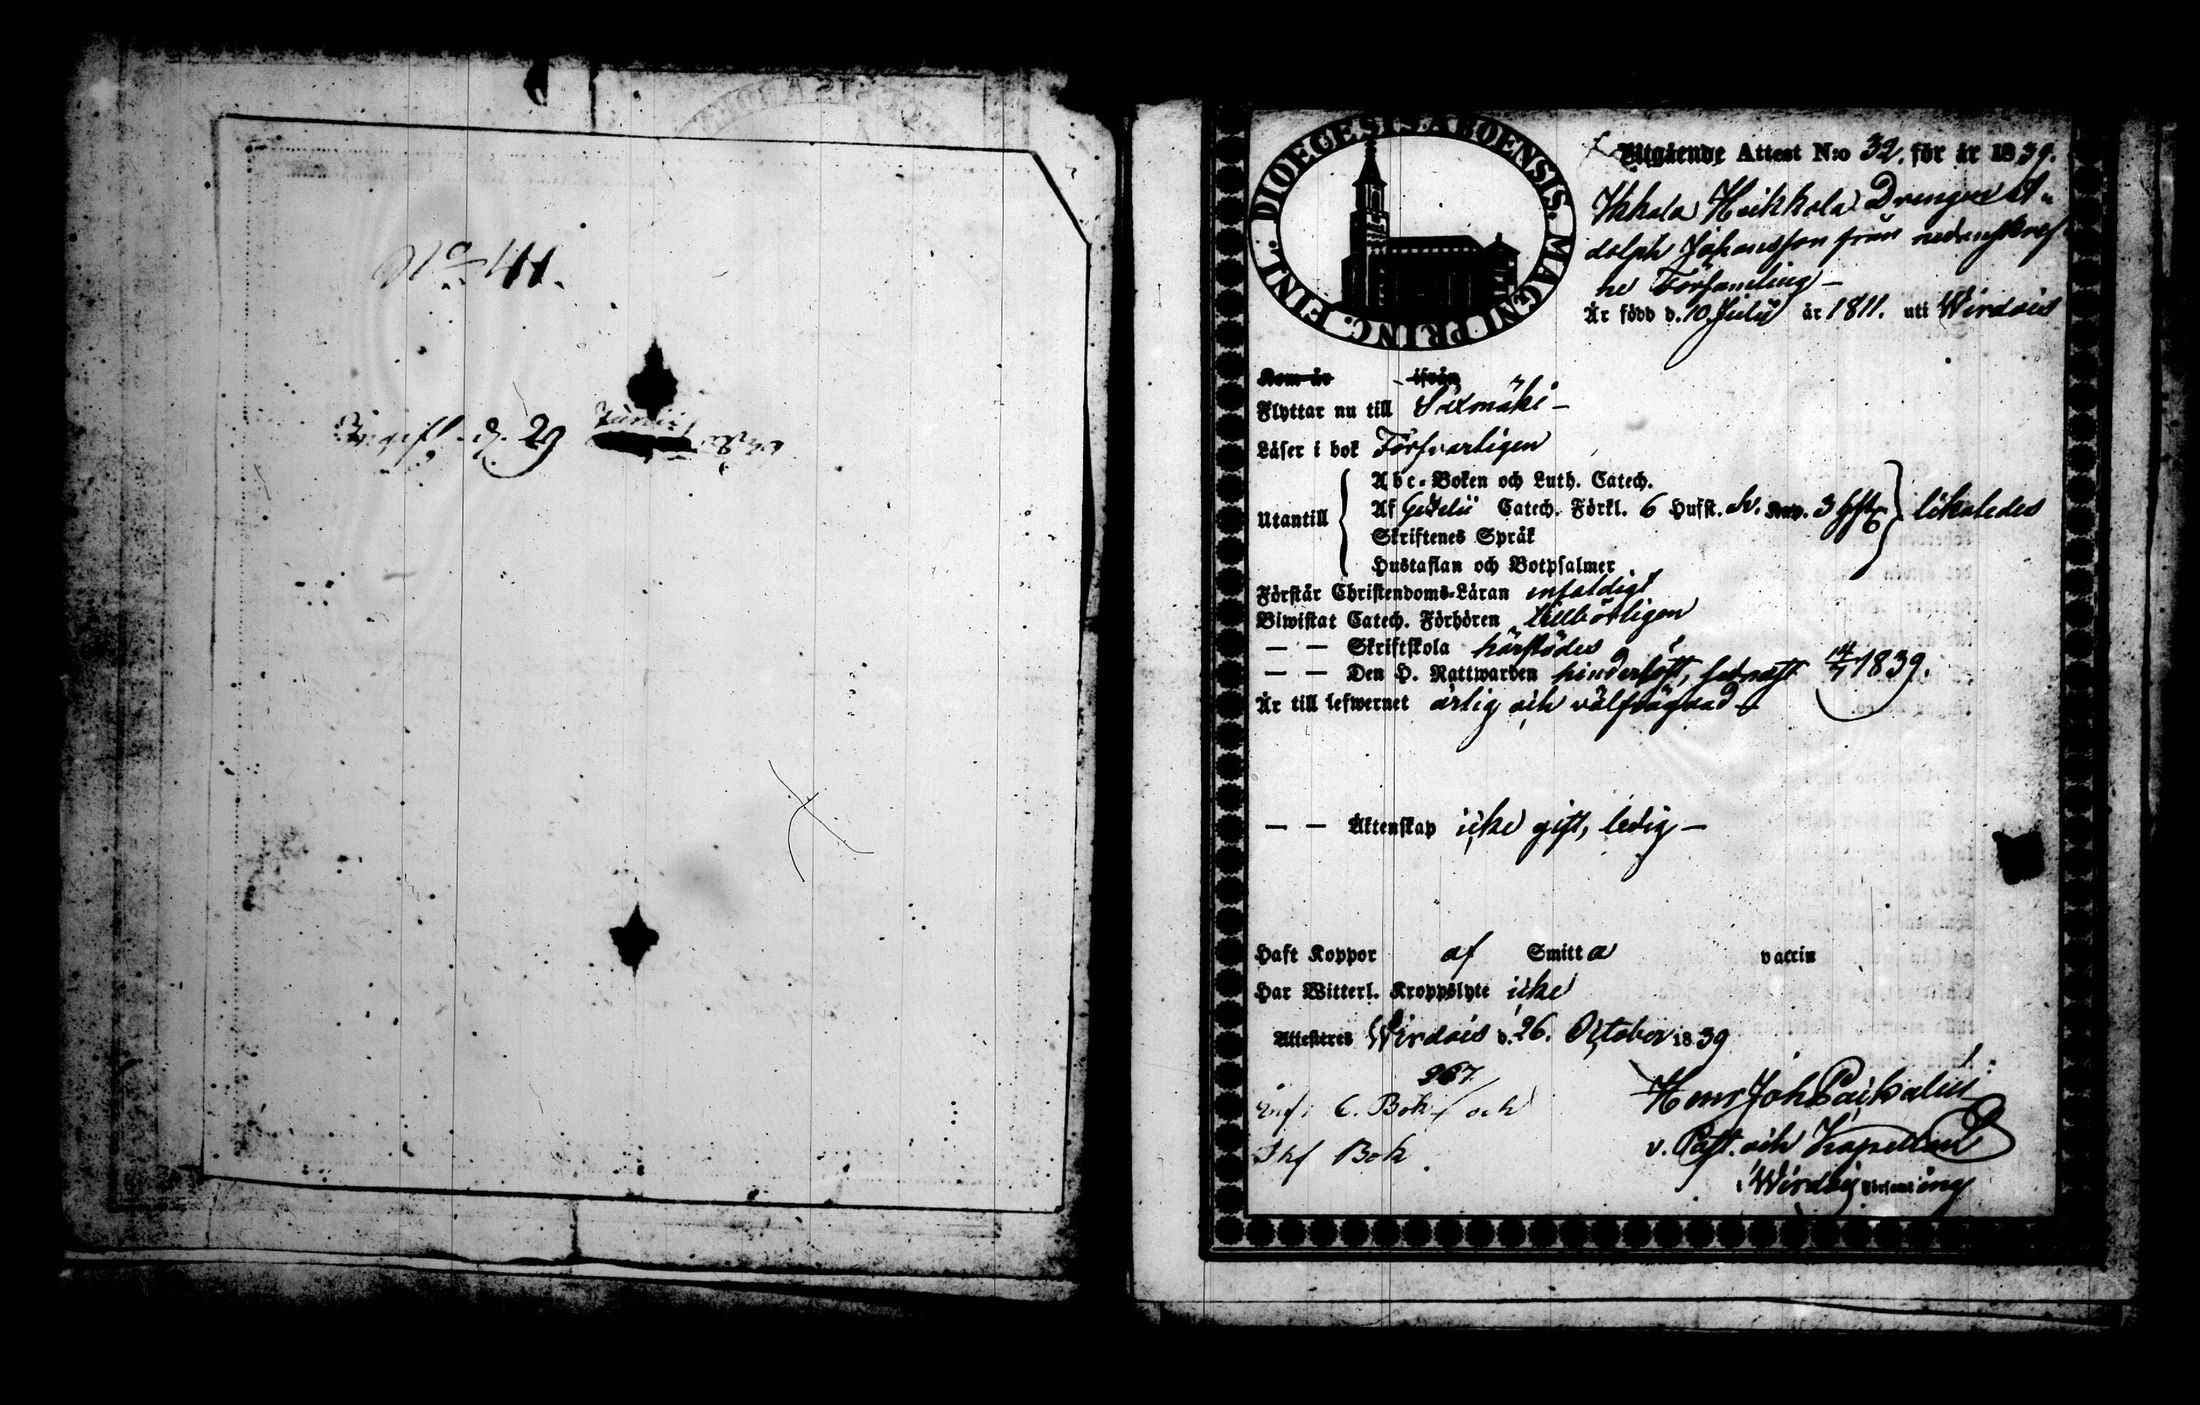 No 41.
d. 29
DIOECESIS ABOENSIS. MAGNI PRINC. FINL.
Utgående Attest N:o 32. för år 1839.
Ikkala Heikkola Drengen A-
dolph Johansson från nedanskref
ne Församling –
Är född d. 10 Julii år 1811. uti Wirdois
Kom år ifrån
Flyttar nu till Säxmäki –
Läser i bok Försvarligen
Abc-Boken och Luth. Catech.
Utantill Af Gezelii Catech. Förkl. 6 Husst. likaledes
Skriftenes Språk
Hustaflan och Botpsalmer
Förstår Christendoms-Läran enfaldigt
Biwistat Catech. Förhören tillbörligen
— — Skriftskola härstädes
— — Den H. Nattwarden hinderlöst, sednast 14/7 1839.
Är till lefwernet ärlig och välfrägdad –
— — Äktenskap icke gift, ledig –
Haft Koppor af Smitta vaccin
Har Witterl. Kroppslyte icke
Attesteres Wirdois d. 26. October 1839
267
Inf. C. Bok och
Ikf Bok.
Henr Joh
v. Past. och Kapellan
i Wirdois Församling